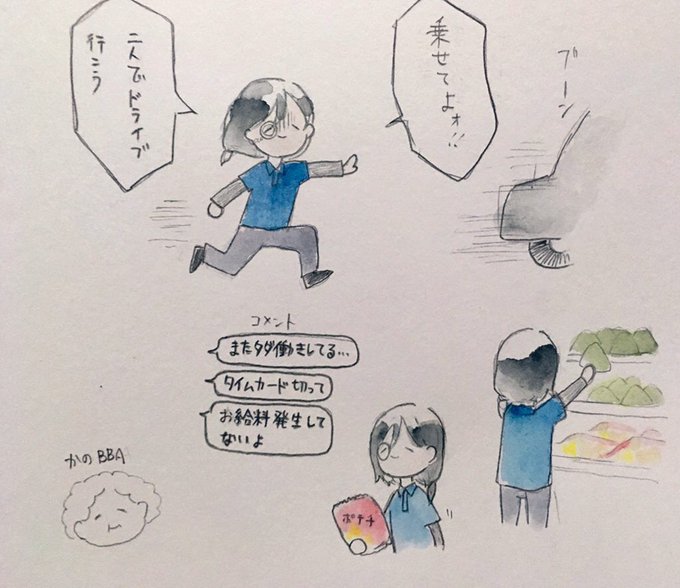 乗せてよォ!!
ブーン
二人でドライブ
行こう
コメント
またタダ働きしてる…
タイムカード切って
お給料発生して
ないよ
かのBBA
ポテチ